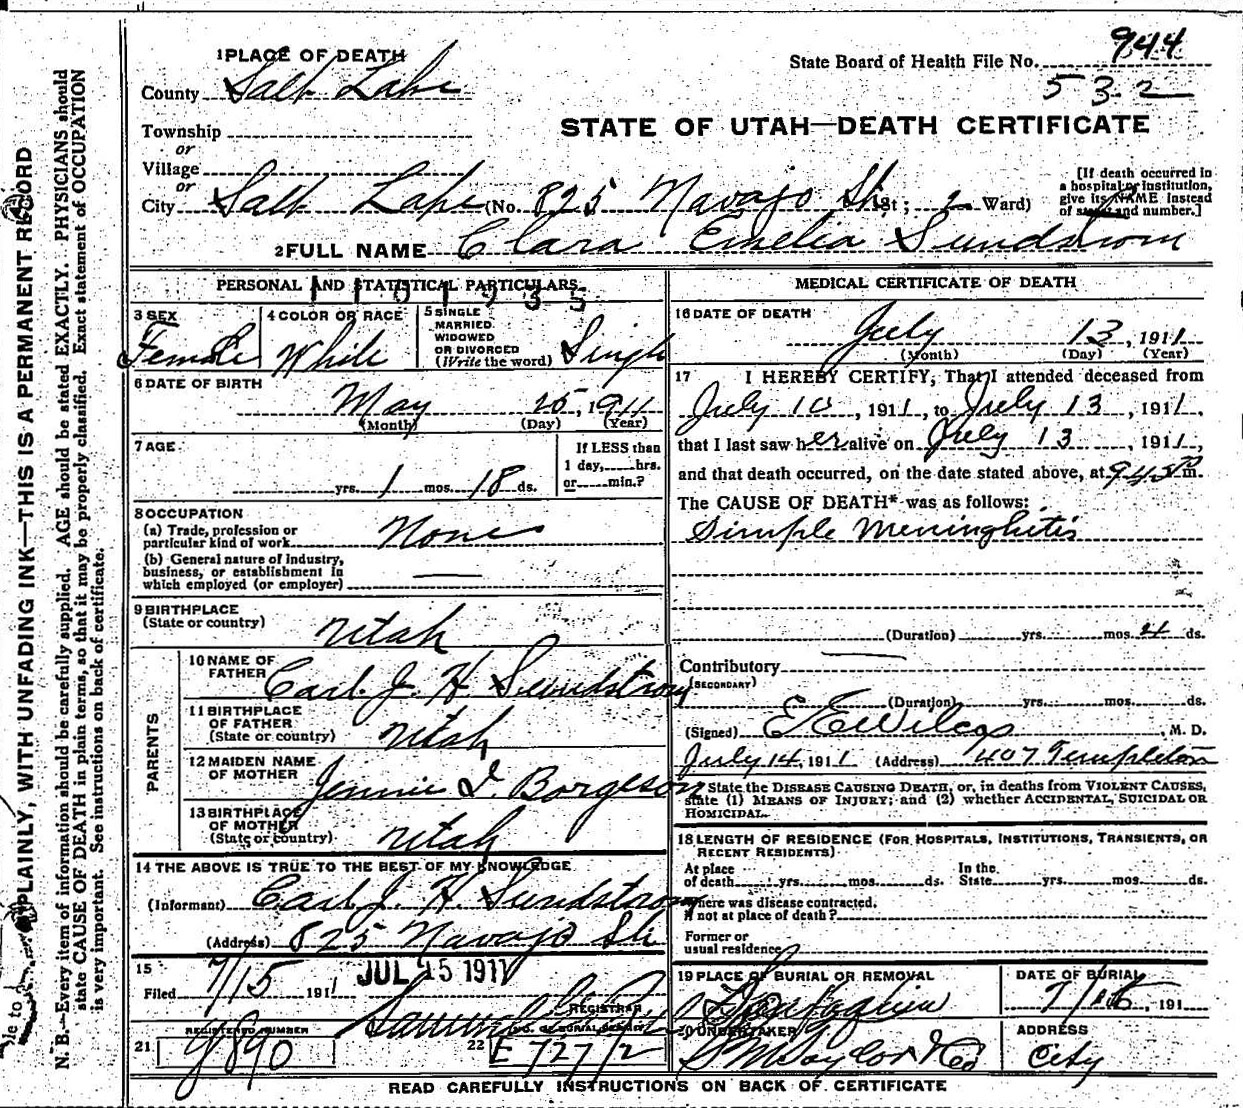 1 PLACE OF DEATH
State Board of Health File No. 944
532
County Salt Lake
STATE OF UTAH—DEATH CERTIFICATE
Township
or
Village
or
City Salt Lake (No. 825 Navajo St. St; 2 Ward)
[If death occurred in a hospital or institution, give its NAME instead of street and number.]
2 FULL NAME Clara Emelia Sundstrom
PERSONAL AND STATISTICAL PARTICULARS
1101935
3 SEX
Female
4 COLOR OR RACE
White
5 SINGLE
MARRIED
WIDOWED
OR DIVORCED
(Write the word) Single
6 DATE OF BIRTH
May 25, 1911
(Month) (Day) (Year)
7 AGE
yrs. 1 mos. 18 ds.
If LESS than
1 day, hrs.
or min.?
8 OCCUPATION
(a) Trade, profession or
particular kind of work None
(b) General nature of industry,
business, or establishment in
which employed (or employer)
9 BIRTHPLACE
(State or country) Utah
PARENTS
10 NAME OF
FATHER Carl J. H Sundstrom
11 BIRTHPLACE
OF FATHER
(State or country) Utah
12 MAIDEN NAME
OF MOTHER Jennie I. Borgeson
13 BIRTHPLACE
OF MOTHER
(State or country) Utah
14 THE ABOVE IS TRUE TO THE BEST OF MY KNOWLEDGE
(Informant) Carl J. H. Sundstrom
(Address) 825 Navajo St
15
Filed 7/15 1911 JUL 15 1911
REGISTRAR
REGISTERED NUMBER
21 9890
22 NO. OF BURIAL PERMIT
E 727/2
MEDICAL CERTIFICATE OF DEATH
16 DATE OF DEATH
July 13, 1911
(Month) (Day) (Year)
17 I HEREBY CERTIFY, That I attended deceased from
July 10, 1911, to July 13, 1911,
that I last saw her alive on July 13, 1911,
and that death occurred, on the date stated above, at 945 m.
The CAUSE OF DEATH* was as follows:
Simple Meninghitis
(Duration) yrs. mos. 4 ds.
Contributory
(SECONDARY)
(Duration) yrs. mos. ds.
(Signed) E E Wilcox, M. D.
July 14, 1911 (Address) 407 Templeton
State the DISEASE CAUSING DEATH, or, in deaths from VIOLENT CAUSES,
state (1) MEANS OF INJURY; and (2) whether ACCIDENTAL, SUICIDAL OR
HOMICIDAL.
18 LENGTH OF RESIDENCE (FOR HOSPITALS, INSTITUTIONS, TRANSIENTS, OR
RECENT RESIDENTS)
At place
of death yrs. mos. ds.
In the
State yrs. mos. ds.
Where was disease contracted,
if not at place of death?
Former or
usual residence
19 PLACE OF BURIAL OR REMOVAL
DATE OF BURIAL
191
20 UNDERTAKER
S M Taylor & Co
ADDRESS
City
READ CAREFULLY INSTRUCTIONS ON BACK OF CERTIFICATE
PLAINLY, WITH UNFADING INK—THIS IS A PERMANENT RECORD
N. B.—Every item of information should be carefully supplied. AGE should be stated EXACTLY. PHYSICIANS should
state CAUSE OF DEATH in plain terms, so that it may be properly classified. Exact statement of OCCUPATION
is very important. See instructions on back of certificate.